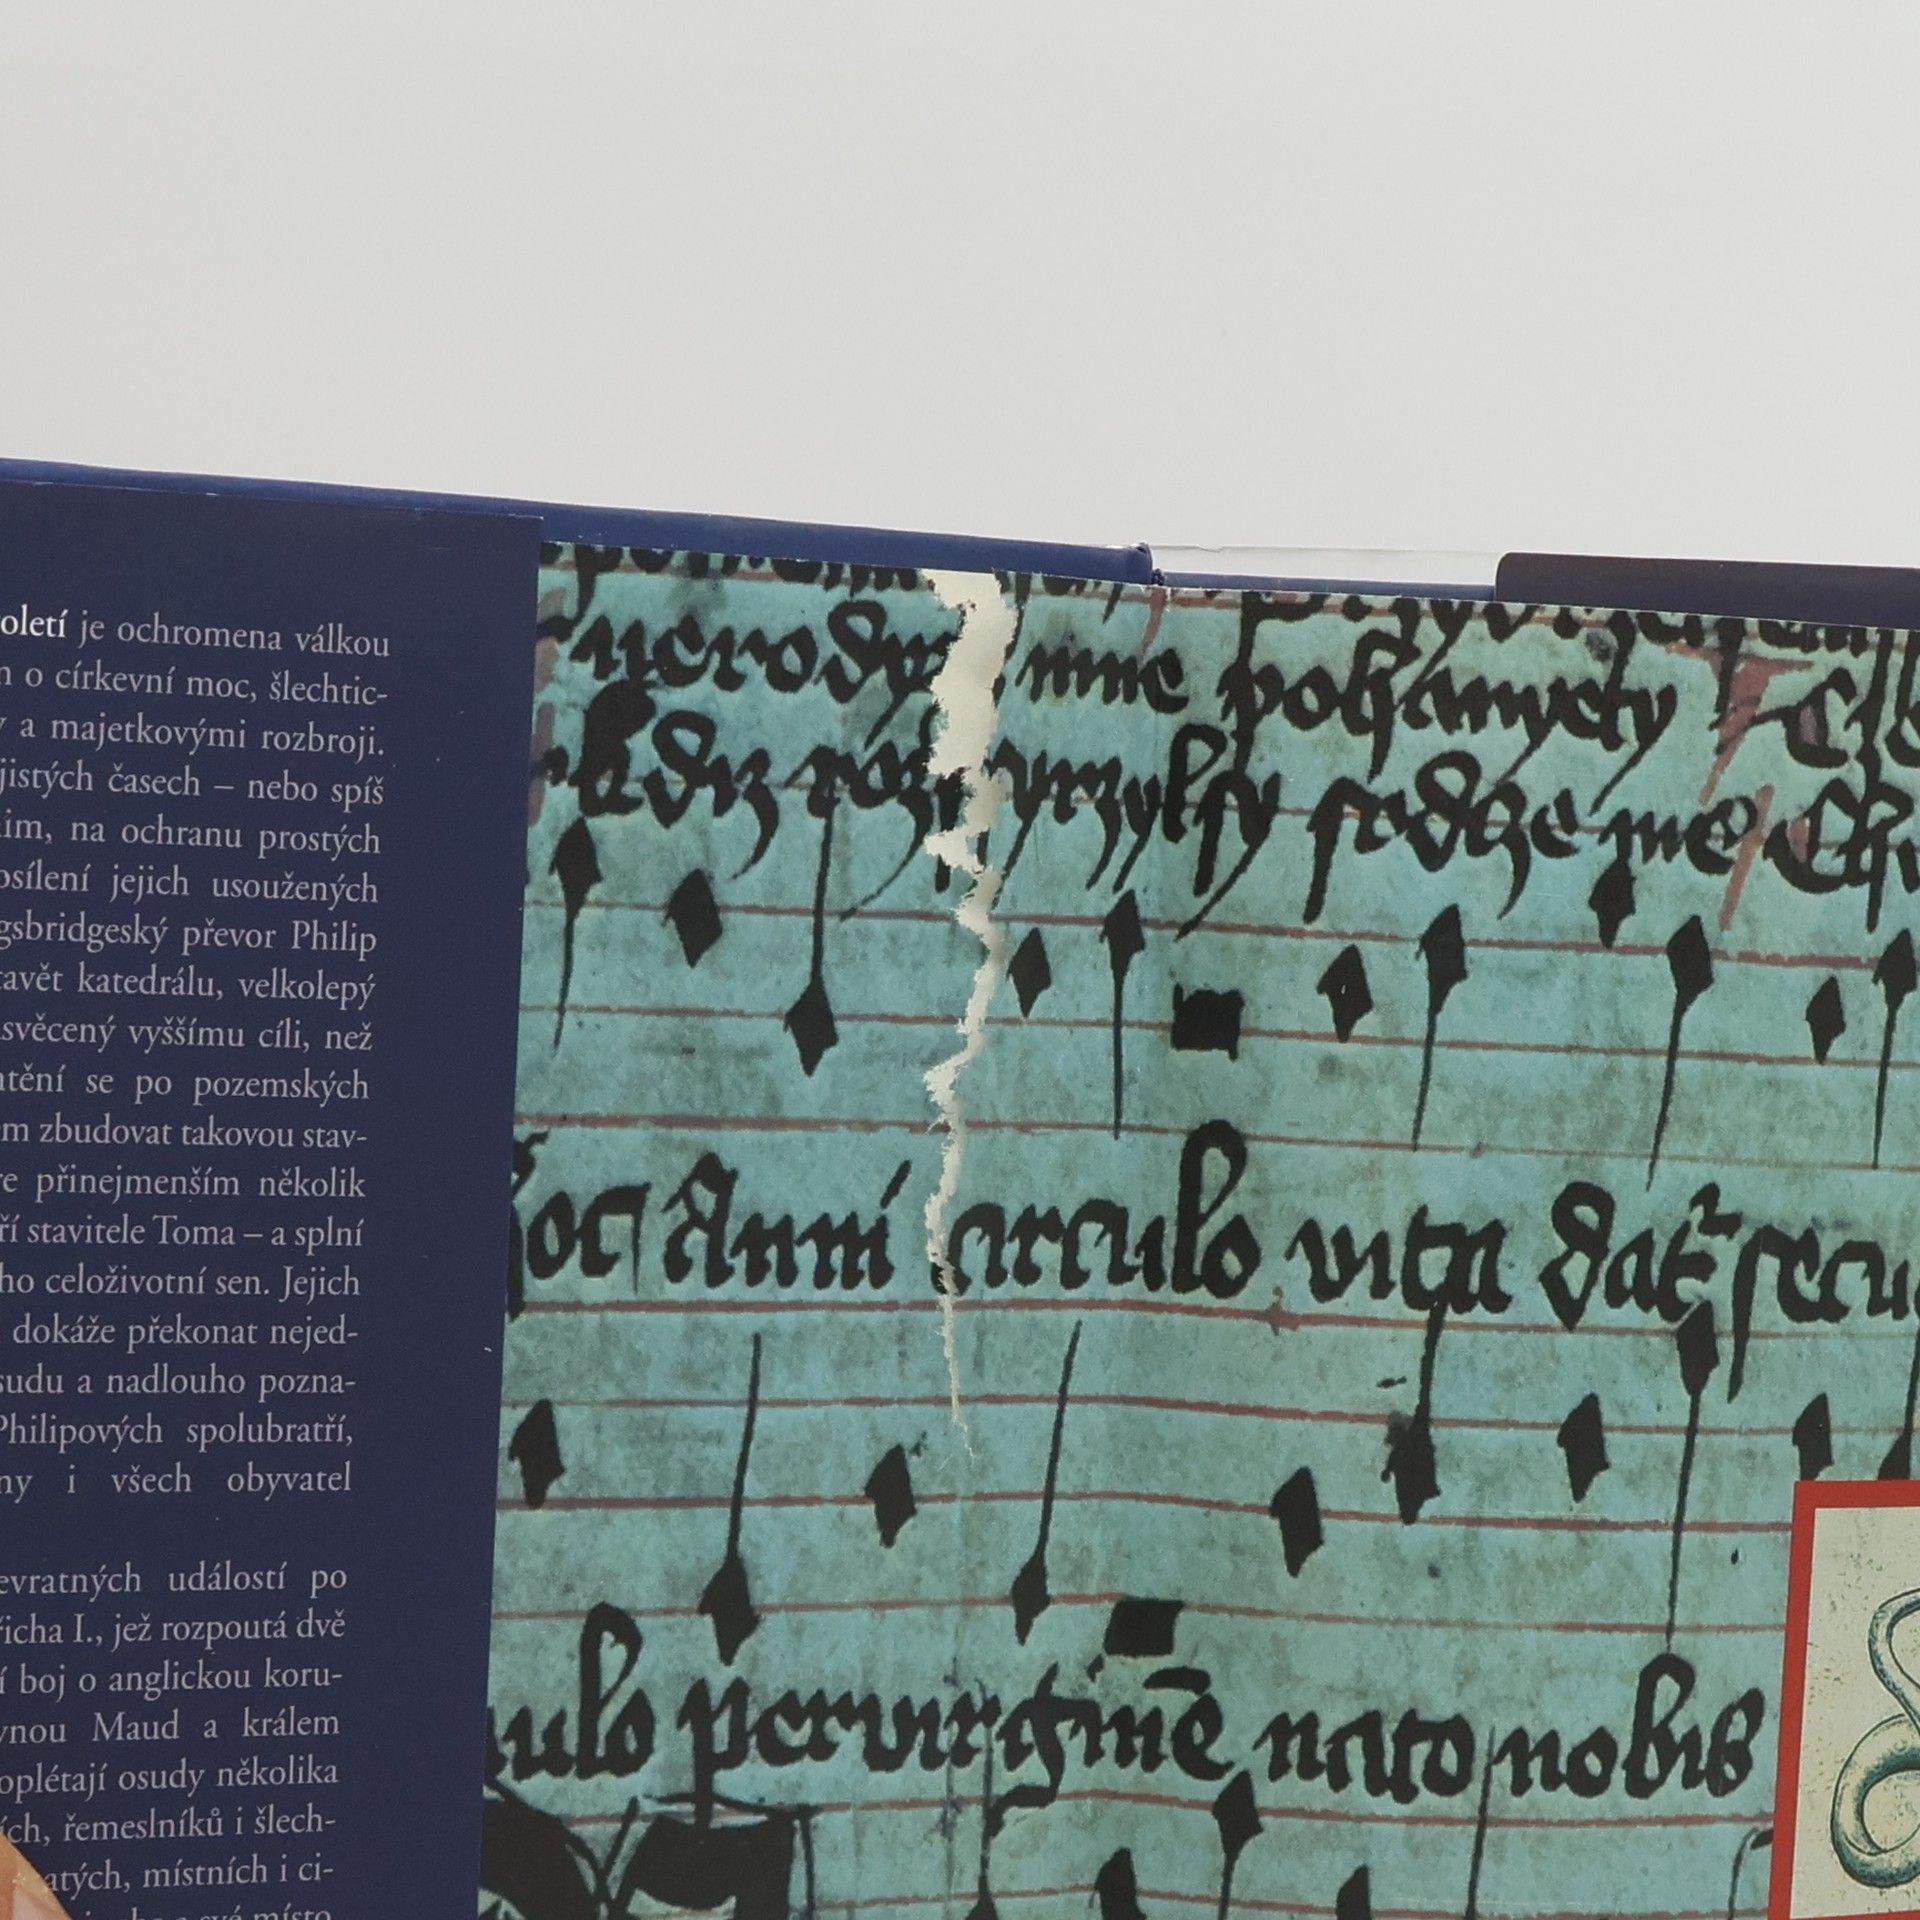 oletí je ochromena válkou
o církevní moc, šlechtic-
a majetkovými rozbroji.
jistých časech – nebo spíš
im, na ochranu prostých
osílení jejich usoužených
gsbridgeský převor Philip
avět katedrálu, velkolepý
svěcený vyššímu cíli, než
tění se po pozemských
em zbudovat takovou stav-
e přinejmenším několik
ří stavitele Toma – a splní
ho celoživotní sen. Jejich
dokáže překonat nejed-
sudu a nadlouho pozna-
Philipových spolubratří,
ny i všech obyvatel
evratných událostí po
icha I., jež rozpoutá dvě
í boj o anglickou koru-
vnou Maud a králem
oplétají osudy několika
ích, řemeslníků i šlech-
atých, místních i ci-
své místo
nerody mne pohanyety
kdiz roz yrzylssy sedze me
hoc Anni circulo vita dat secu
ulo per virginē nato nobis